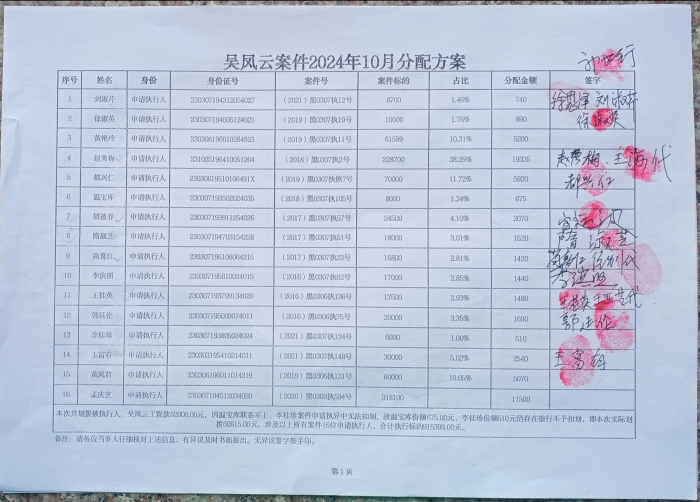 吴凤云案件2024年10月分配方案
序号 姓名 身份 身份证号 案件号 案件标的 占比 分配金额 签字
1 刘淑芹 申请执行人 230307194312054027 （2021）黑0307执12号 8700 1.46% 740
2 徐淑英 申请执行人 230307194005124021 （2019）黑0307执19号 10500 1.76% 890
3 黄艳玲 申请执行人 230306196610284923 （2019）黑0307执11号 61599 10.31% 5200
4 赵秀梅 申请执行人 231025196410051264 （2018）黑0307执2号 228700 38.29% 19335
5 郝兴仁 申请执行人 23030619510106491X （2019）黑0307执恢7号 70000 11.72% 5920
6 温宝库 申请执行人 230307193502024035 （2018）黑0307执105号 8000 1.34% 675
7 胡连春 申请执行人 230307193911254026 （2017）黑0307执57号 24500 4.10% 2070
8 隋淑芝 申请执行人 230307194703154228 （2017）黑0307执51号 18000 3.01% 1520
9 尚喜江 申请执行人 230307195106064215 （2017）黑0307执23号 16800 2.81% 1420
10 李滨照 申请执行人 230307195610024015 （2016）黑0307执62号 17000 2.85% 1440
11 王桂英 申请执行人 230307193709134020 （2016）黑0306执136号 17500 2.93% 1480
12 郭廷伦 申请执行人 230307195009074011 （2016）黑0306执75号 20000 3.35% 1690
13 李桂珍 申请执行人 230307193805024024 （2021）黑0307执124号 6000 1.00% 510
14 王富存 申请执行人 230303195410214011 （2021）黑0307执148号 30000 5.02% 2540
15 黄凤君 申请执行人 230306196011014218 （2019）黑0306执131号 60000 10.05% 5070
16 孟庆芝 申请执行人 230307194512034020 （2020）黑0302执594号 318100 11500
本次共划拨被执行人，吴凤云工资款62000.00元。因温宝库联系不上、李桂珍案件申请执异中无法扣划，故温宝库份额675.00元、李桂珍份额510元仍存在银行不予扣划，即本次实际划
拨60815.00元。涉及以上所有案件16位申请执行人，合计执行标的915399.00元。
备注：请各位当事人仔细核对上述信息，有异议及时书面提出。无异议签字按手印。
第 1 页